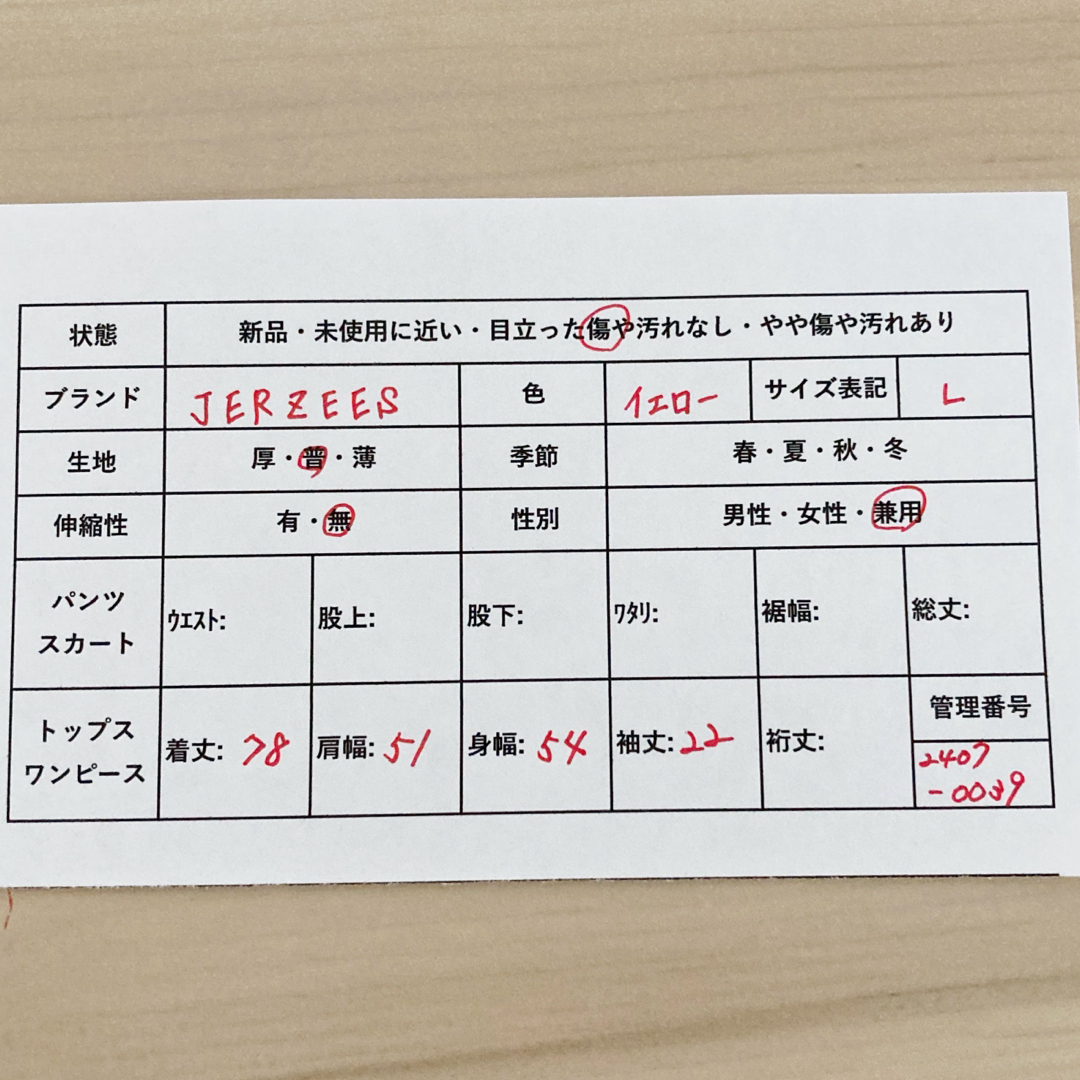 状態 新品・未使用に近い・目立った傷や汚れなし・やや傷や汚れあり
ブランド JERZEES 色 イエロー サイズ表記 L
生地 厚・普・薄 季節 春・夏・秋・冬
伸縮性 有・無 性別 男性・女性・兼用
パンツ
スカート
ウエスト: 股上: 股下: ワタリ: 裾幅: 総丈:
トップス
ワンピース
着丈: 78 肩幅: 51 身幅: 54 袖丈: 22 裄丈:
管理番号
2407
-0039